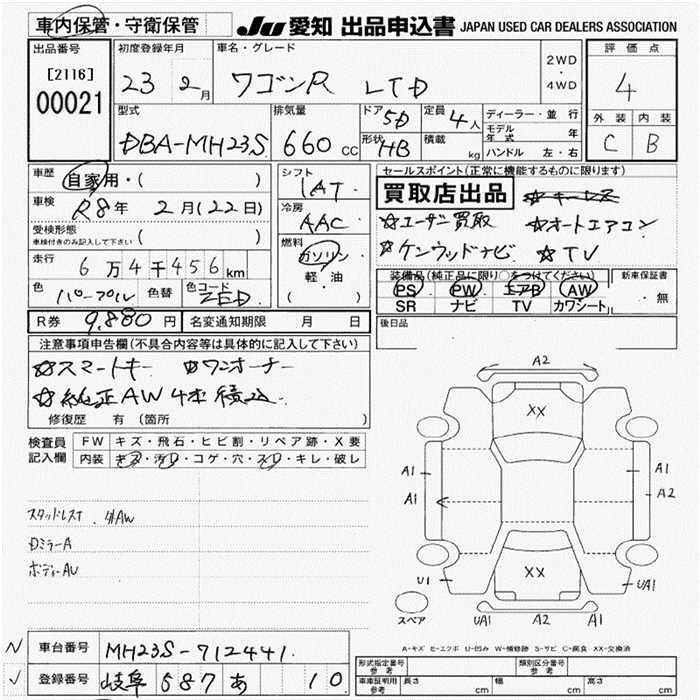 車内保管・守衛保管
JU 愛知 出品申込書 JAPAN USED CAR DEALERS ASSOCIATION
出品番号
[2116]
00021
初度登録年月
23 2月
車名・グレード
ワゴンR LTD
2WD
・
4WD
評価点
4
外装 内装
C B
型式
DBA-MH23S
排気量
660 cc
ドア 5D
形状 HB
定員 4人
積載 kg
ディーラー・並行
モデル年式 年
ハンドル 左・右
車歴 自家用・( )
車検 R8年 2月(22日)
受検形態
車検付きのみ記入して下さい ( )
走行 6万4千456km
色 パープル 色替 色コード ZED
R券 9,880円 名変通知期限 月 日
シフト
1AT
冷房
AAC
燃料
ガソリン
軽・油
( )
セールスポイント(正常に機能するものに限ります)
買取店出品 ☆キーレス
☆ユーザー買取 ☆オートエアコン
☆ケンウッドナビ ☆TV
装備品(純正品に限り○をつけてください)
PS PW エアB AW
SR ナビ TV カワシート
新車保証書
・無
後日品
注意事項申告欄(不具合内容等は具体的に記入して下さい)
☆スマートキー ☆ワンオーナー
☆純正AW4本積込
修復歴 有 (箇所 )
検査員記入欄
FW キズ・飛石・ヒビ割・リペア跡・X要
内装 キズ・汚れ・コゲ・穴・スレ・キレ・破レ
スタッドレスT . 社AW
DミラーA
ボディーAU
A2
XX
A1
A1
A1
A2
U1
XX
UA1
スペア
UA1 A2 A1
A-キズ E-エクボ U-凹み W-補修跡 S-サビ C-腐食 XX-交換済
N 車台番号 MH23S-712441
✓ 登録番号 岐阜 587 あ 10
形式指定番号
参考
類別区分番号
参考
車庫証明用
参考
長さ cm 幅 cm 高さ cm